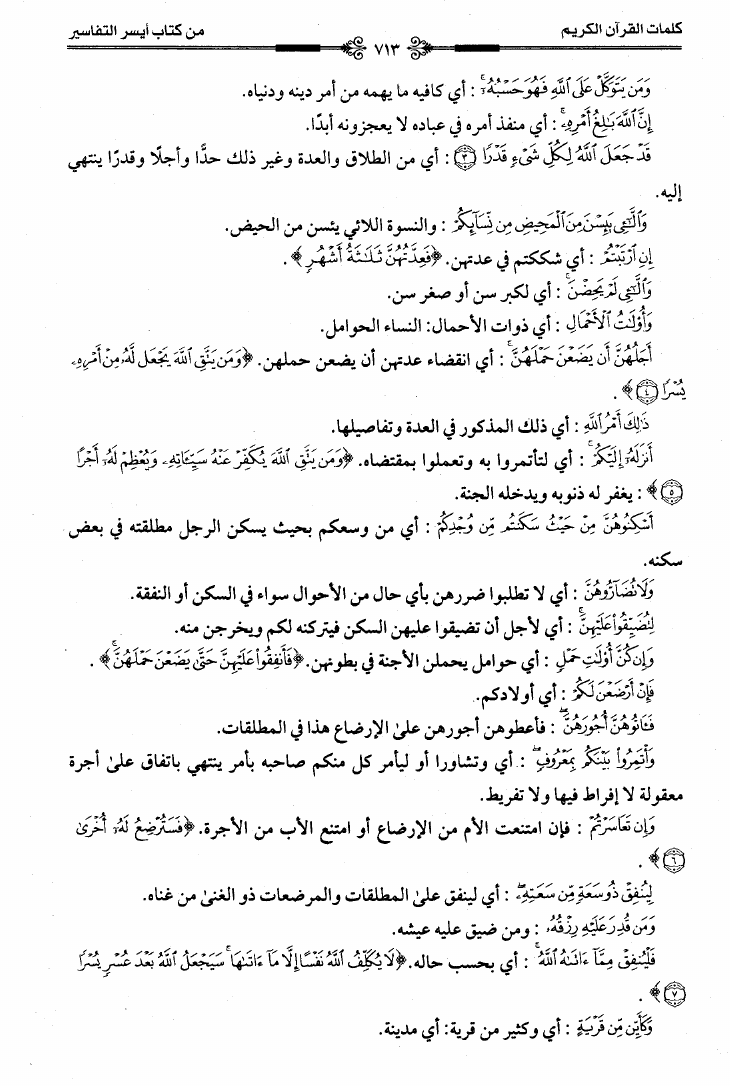 كلمات القرآن الكريم
٧١٣
من كتاب أيسر التفاسير
وَمَن يَتَوَكَّلْ عَلَى ٱللَّهِ فَهُوَ حَسْبُهُۥٓ ۚ : أي كافيه ما يهمه من أمر دينه ودنياه.
إِنَّ ٱللَّهَ بَٰلِغُ أَمْرِهِۦ ۚ : أي منفذ أمره في عباده لا يعجزونه أبدًا.
قَدْ جَعَلَ ٱللَّهُ لِكُلِّ شَىْءٍ قَدْرًا ﴿٣﴾ : أي من الطلاق والعدة وغير ذلك حدًّا وأجلًا وقدرًا ينتهي
إليه.
وَٱلَّٰٓـِٔى يَئِسْنَ مِنَ ٱلْمَحِيضِ مِن نِّسَآئِكُمْ : والنسوة اللائي يئسن من الحيض.
إِنِ ٱرْتَبْتُمْ : أي شككتم في عدتهن. ﴿فَعِدَّتُهُنَّ ثَلَٰثَةُ أَشْهُرٍ﴾ .
وَٱلَّٰٓـِٔى لَمْ يَحِضْنَ ۚ : أي لكبر سن أو صغر سن.
وَأُو۟لَٰتُ ٱلْأَحْمَالِ : أي ذوات الأحمال: النساء الحوامل.
أَجَلُهُنَّ أَن يَضَعْنَ حَمْلَهُنَّ ۚ : أي انقضاء عدتهن أن يضعن حملهن. ﴿وَمَن يَتَّقِ ٱللَّهَ يَجْعَل لَّهُۥ مِنْ أَمْرِهِۦ
يُسْرًا ﴿٤﴾﴾ .
ذَٰلِكَ أَمْرُ ٱللَّهِ : أي ذلك المذكور في العدة وتفاصيلها.
أَنزَلَهُۥٓ إِلَيْكُمْ ۚ : أي لتأتمروا به وتعملوا بمقتضاه. ﴿وَمَن يَتَّقِ ٱللَّهَ يُكَفِّرْ عَنْهُ سَيِّـَٔاتِهِۦ وَيُعْظِمْ لَهُۥٓ أَجْرًا
﴿٥﴾﴾ : يغفر له ذنوبه ويدخله الجنة.
أَسْكِنُوهُنَّ مِنْ حَيْثُ سَكَنتُم مِّن وُجْدِكُمْ : أي من وسعكم بحيث يسكن الرجل مطلقته في بعض
سكنه.
وَلَا تُضَآرُّوهُنَّ : أي لا تطلبوا ضررهن بأي حال من الأحوال سواء في السكن أو النفقة.
لِتُضَيِّقُوا۟ عَلَيْهِنَّ ۚ : أي لأجل أن تضيقوا عليهن السكن فيتركنه لكم ويخرجن منه.
وَإِن كُنَّ أُو۟لَٰتِ حَمْلٍ : أي حوامل يحملن الأجنة في بطونهن. ﴿فَأَنفِقُوا۟ عَلَيْهِنَّ حَتَّىٰ يَضَعْنَ حَمْلَهُنَّ ۚ﴾ .
فَإِنْ أَرْضَعْنَ لَكُمْ : أي أولادكم.
فَـَٔاتُوهُنَّ أُجُورَهُنَّ ۖ : فأعطوهن أجورهن على الإرضاع هذا في المطلقات.
وَأْتَمِرُوا۟ بَيْنَكُم بِمَعْرُوفٍ ۖ : أي وتشاورا أو ليأمر كل منكم صاحبه بأمر ينتهي باتفاق على أجرة
معقولة لا إفراط فيها ولا تفريط.
وَإِن تَعَاسَرْتُمْ : فإن امتنعت الأم من الإرضاع أو امتنع الأب من الأجرة. ﴿فَسَتُرْضِعُ لَهُۥٓ أُخْرَىٰ
﴿٦﴾﴾ .
لِيُنفِقْ ذُو سَعَةٍ مِّن سَعَتِهِۦ ۖ : أي لينفق على المطلقات والمرضعات ذو الغنى من غناه.
وَمَن قُدِرَ عَلَيْهِ رِزْقُهُۥ : ومن ضيق عليه عيشه.
فَلْيُنفِقْ مِمَّآ ءَاتَىٰهُ ٱللَّهُ ۚ : أي بحسب حاله. ﴿لَا يُكَلِّفُ ٱللَّهُ نَفْسًا إِلَّا مَآ ءَاتَىٰهَا ۚ سَيَجْعَلُ ٱللَّهُ بَعْدَ عُسْرٍ يُسْرًا
﴿٧﴾﴾ .
وَكَأَيِّن مِّن قَرْيَةٍ : أي وكثير من قرية: أي مدينة.